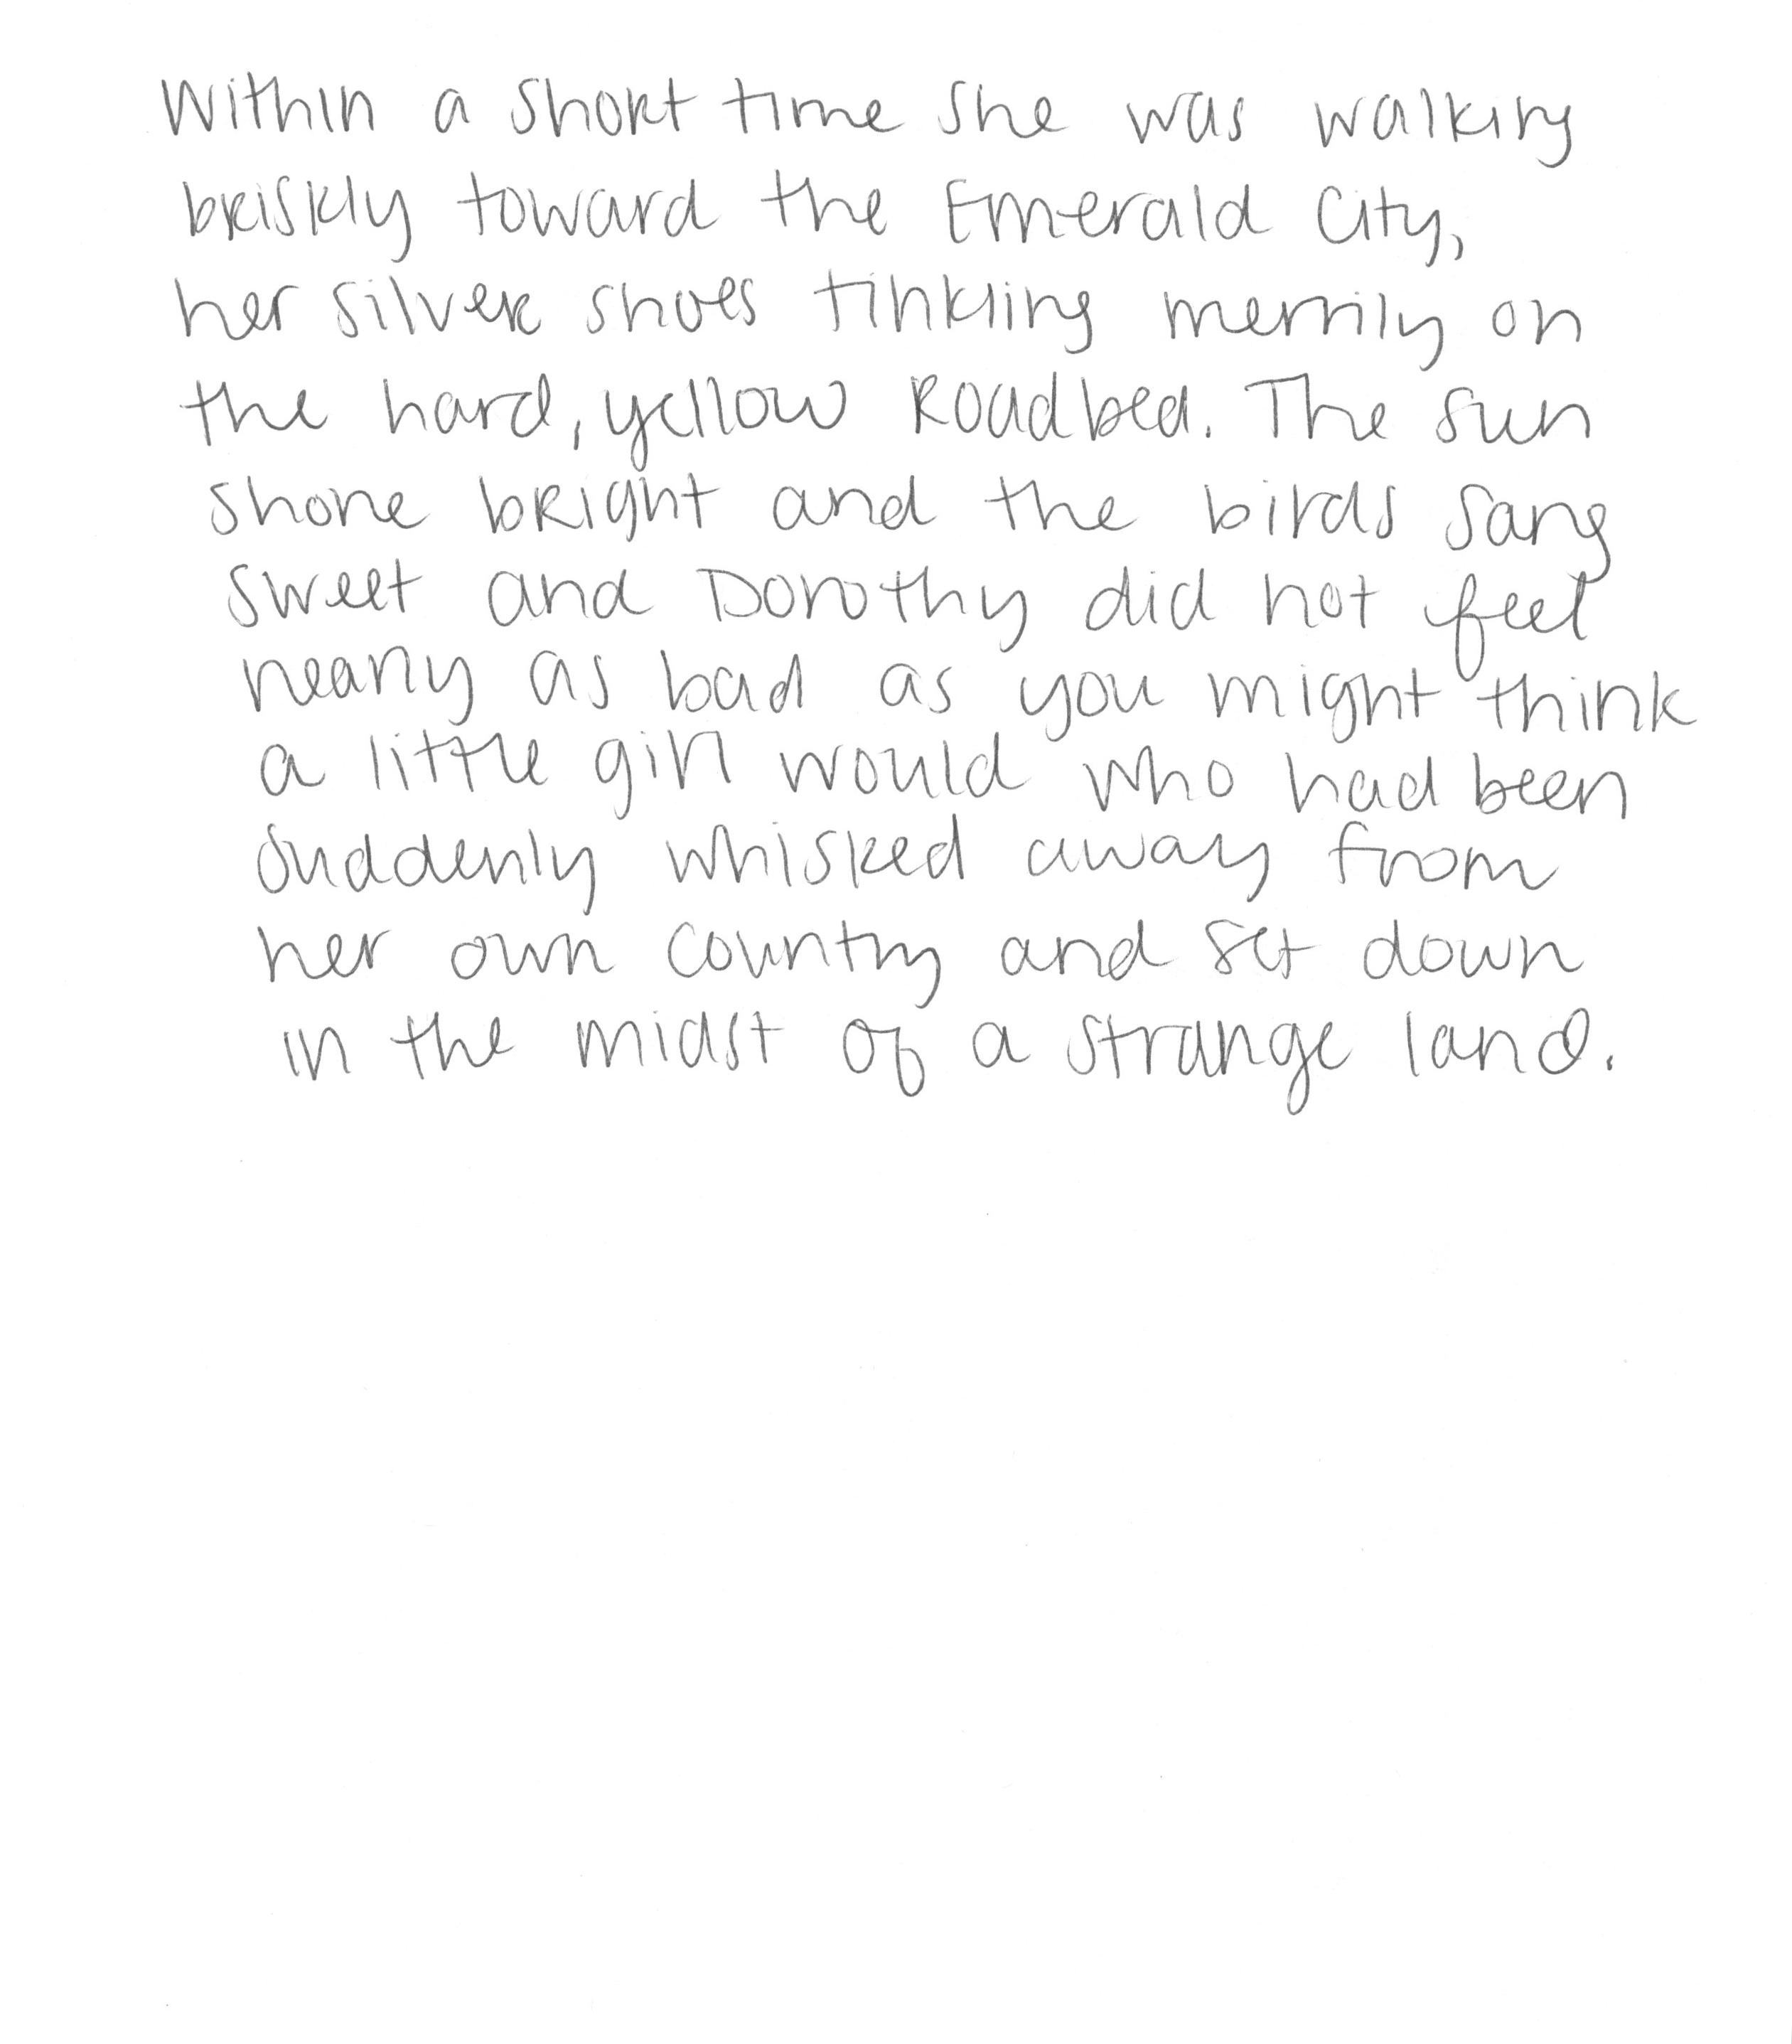 Within a short time she was walking
briskly toward the Emerald City,
her silver shoes tinkling merrily on
the hard, yellow roadbed. The sun
shone bright and the birds sang
sweet and Dorothy did not feel
nearly as bad as you might think
a little girl would who had been
suddenly whisked away from
her own country and set down
in the midst of a strange land.